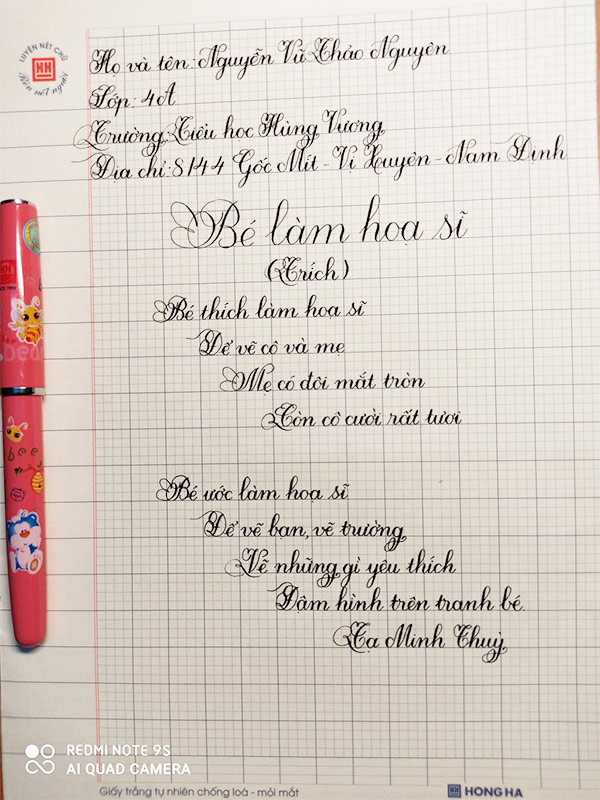 LUYỆN NÉT CHỮ
HH
Rèn nét người
Họ và tên: Nguyễn Vũ Thảo Nguyên
Lớp: 4A
Trường: Tiểu học Hùng Vương
Địa chỉ: 8/44 Gốc Mít - Vị Xuyên - Nam Định
Bé làm hoạ sĩ
(Trích)
Bé thích làm hoạ sĩ
Để vẽ cô và mẹ
Mẹ có đôi mắt tròn
Còn cô cười rất tươi
Bé ước làm hoạ sĩ
Để vẽ bạn, vẽ trường
Vẽ những gì yêu thích
Đậm hình trên tranh bé.
Tạ Minh Thuỷ
HH
bee
REDMI NOTE 9S
AI QUAD CAMERA
Giấy trắng tự nhiên chống loá - mỏi mắt
HONG HA